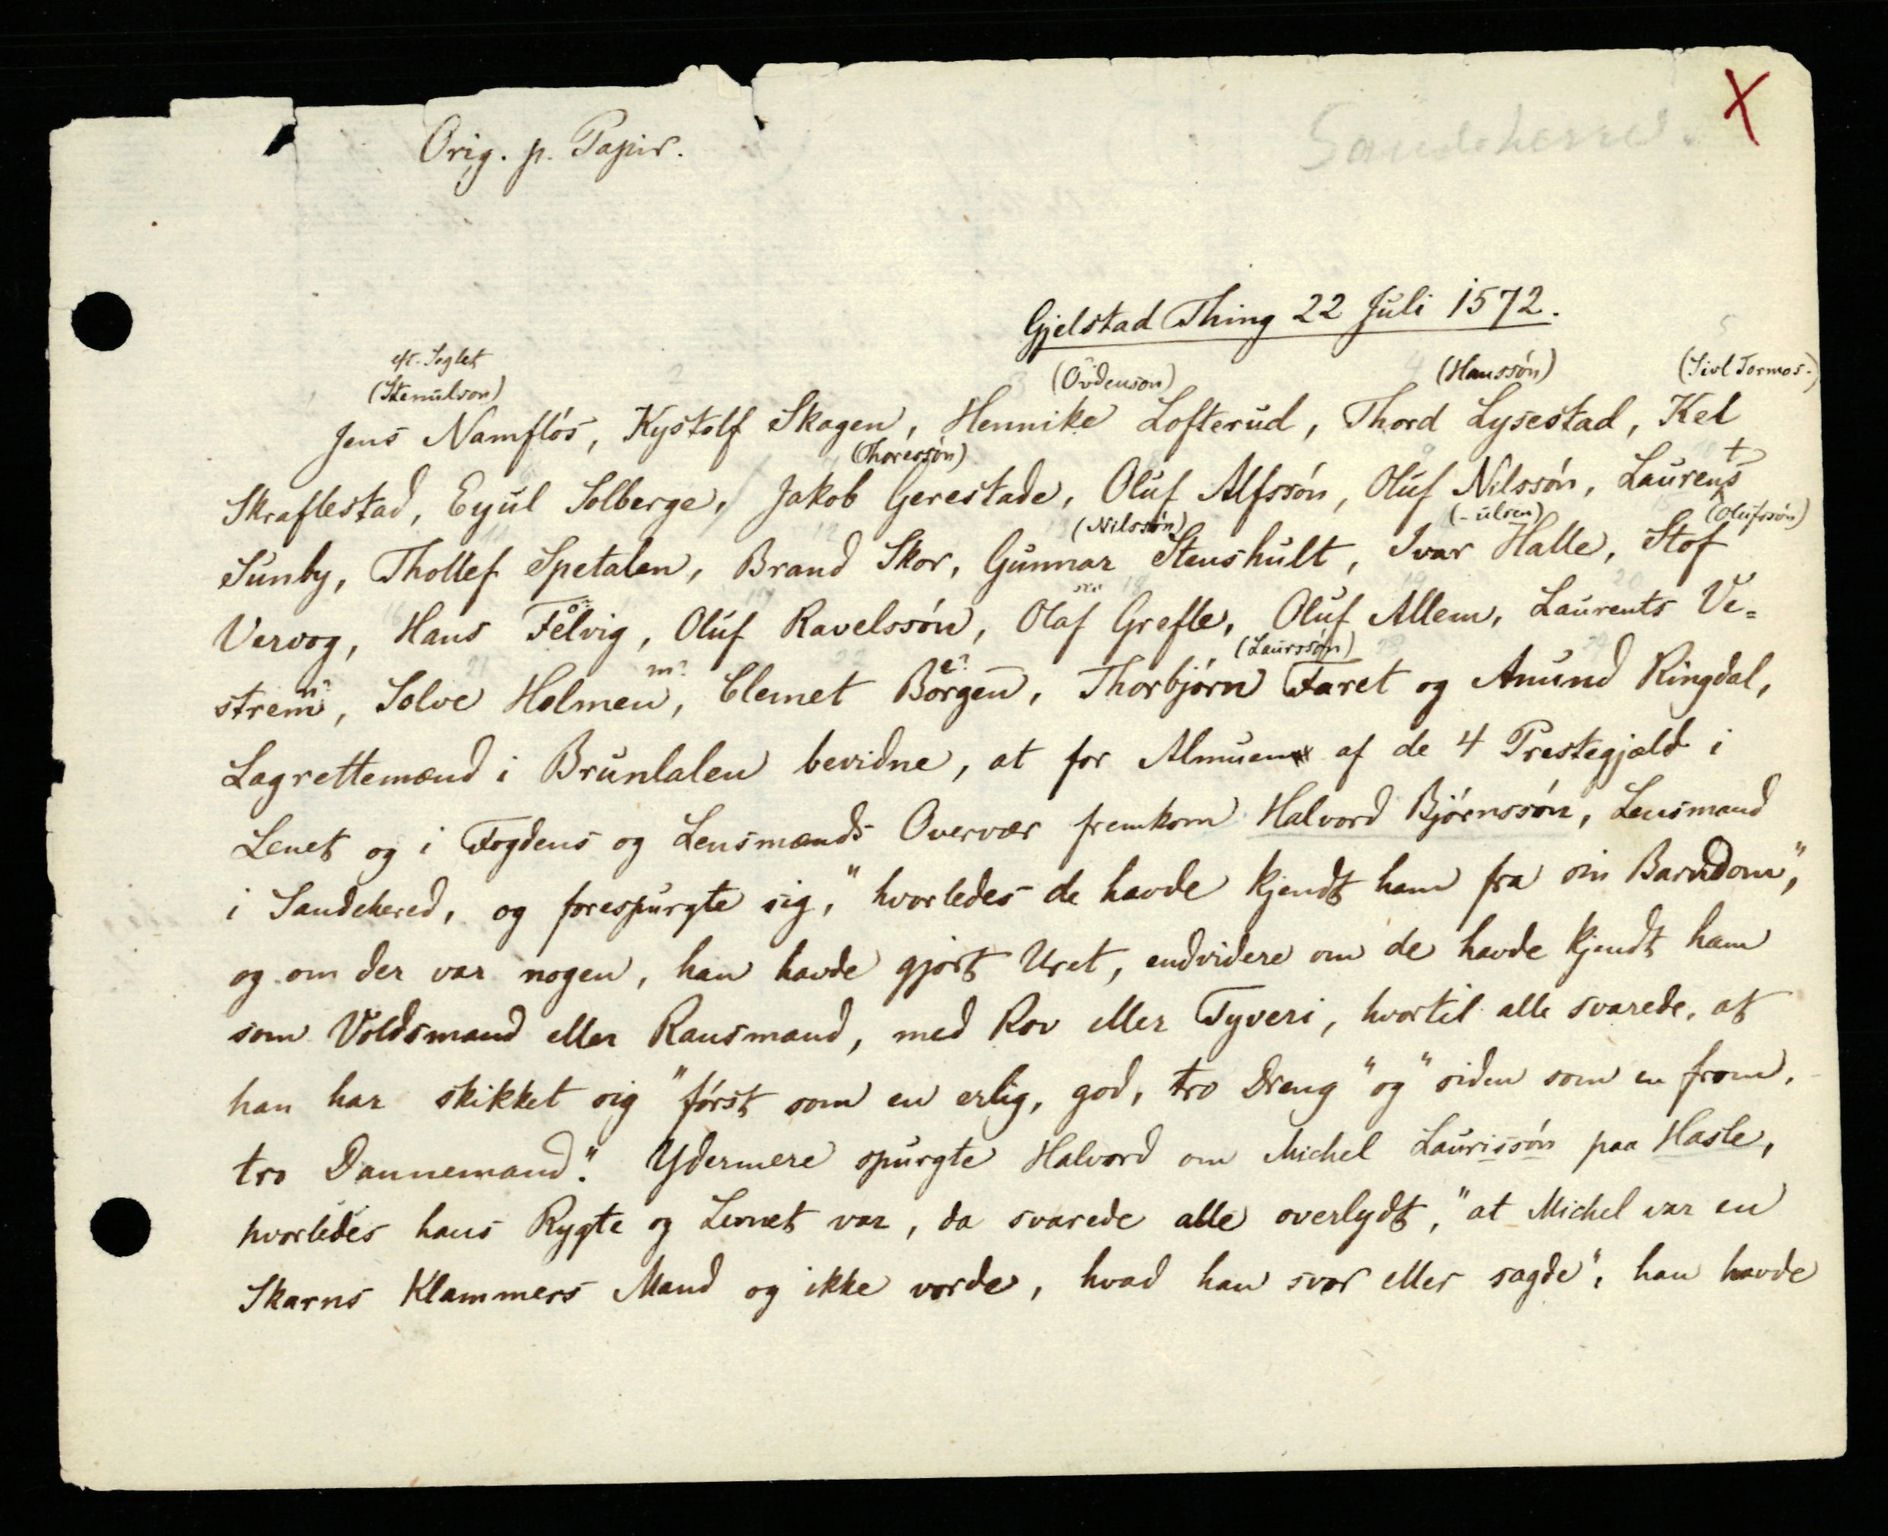 Orig. p. Papir.
Sandeherred.
X
Gjelstad Thing 22 Juli 1572.
eft. Seglet
(Stenulson) (Ovdenson) (Hanssøn) (Sivl Tormos.)
Jens Namfløs, Kystolf Skagen, Hennike Lofterud, Thord Lysestad, Kel
(Thoressøn)
Skraflestad, Eyul Solberge, Jakob Gerestade, Oluf Alfssøn, Oluf Nilssøn, Laurens
(Nilssøn) (-ulsen) (Olufssøn)
Sunby, Thollef Spetalen, Brand Skor, Gunnar Stenshult, Ivar Halle, Stof
Vervog, Hans Følvig, Oluf Ravelssøn, Olaf Grefle, Oluf Allem, Laurents Ve=
(Laurssøn)
strem, Solve Holmen, Clemet Børgen, Thorbjørn Faret og Anund Ringdal,
Lagrettemænd i Brunlalen bevidne, at for Almuen af de 4 Prestegjæld i
Lenet og i Fogdens og Lensmænds Overvær fremkom Halvord Bjørnssøn, Lensmand
i Sandehered, og forespurgte sig, "hvorledes de havde kjendt ham fra sin Barndom",
og om der var nogen, han havde gjört Uret, endvidere om de havde kjendt ham
som Voldsmand eller Ransmand, med Rov eller Tyveri, hvortil alle svarede, at
han har skikket sig "først som en erlig, god, tro Dreng" og "siden som en from,
tro Dannemand". Ydermere spurgte Halvord om Michel Laurissøn paa Hasle,
hvorledes hans Rygte og Levnet var, da svarede alle overlydt, "at Michel var en
Skarns Klammers Mand og ikke vorde, hvad han svor eller sagde", han havde